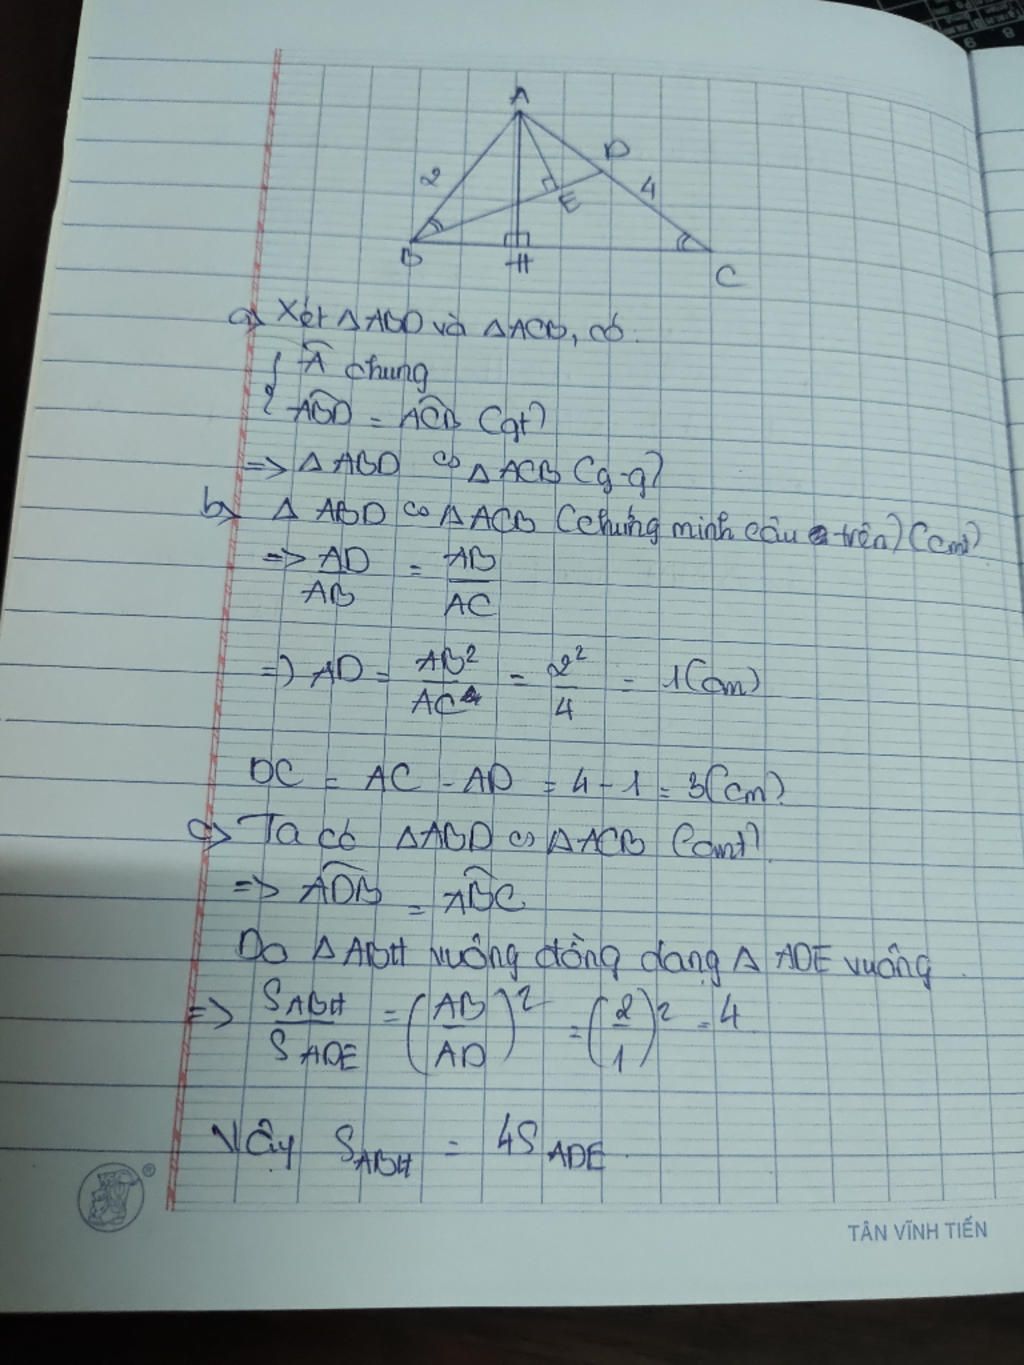 A
D
2
4
E
B
H
C
a) Xét △ABD và △ACB, có.
{ Â chung
ABD = ACB (gt)
=> △ABD ∽ △ACB (g-g)
b) △ABD ∽ △ACB (chứng minh câu trên) (cmt)
=> AD/AB = AB/AC
=> AD = AB²/AC = 2²/4 = 1(cm)
DC = AC - AD = 4 - 1 = 3(cm)
c) Ta có △ABD ∽ △ACB (cmt)
=> ADB = ABC
Do △ABH vuông đồng dạng △ADE vuông.
=> S ABH / S ADE = (AB/AD)² = (2/1)² = 4
Vậy S ABH = 4S ADE
®
TÂN VĨNH TIẾN